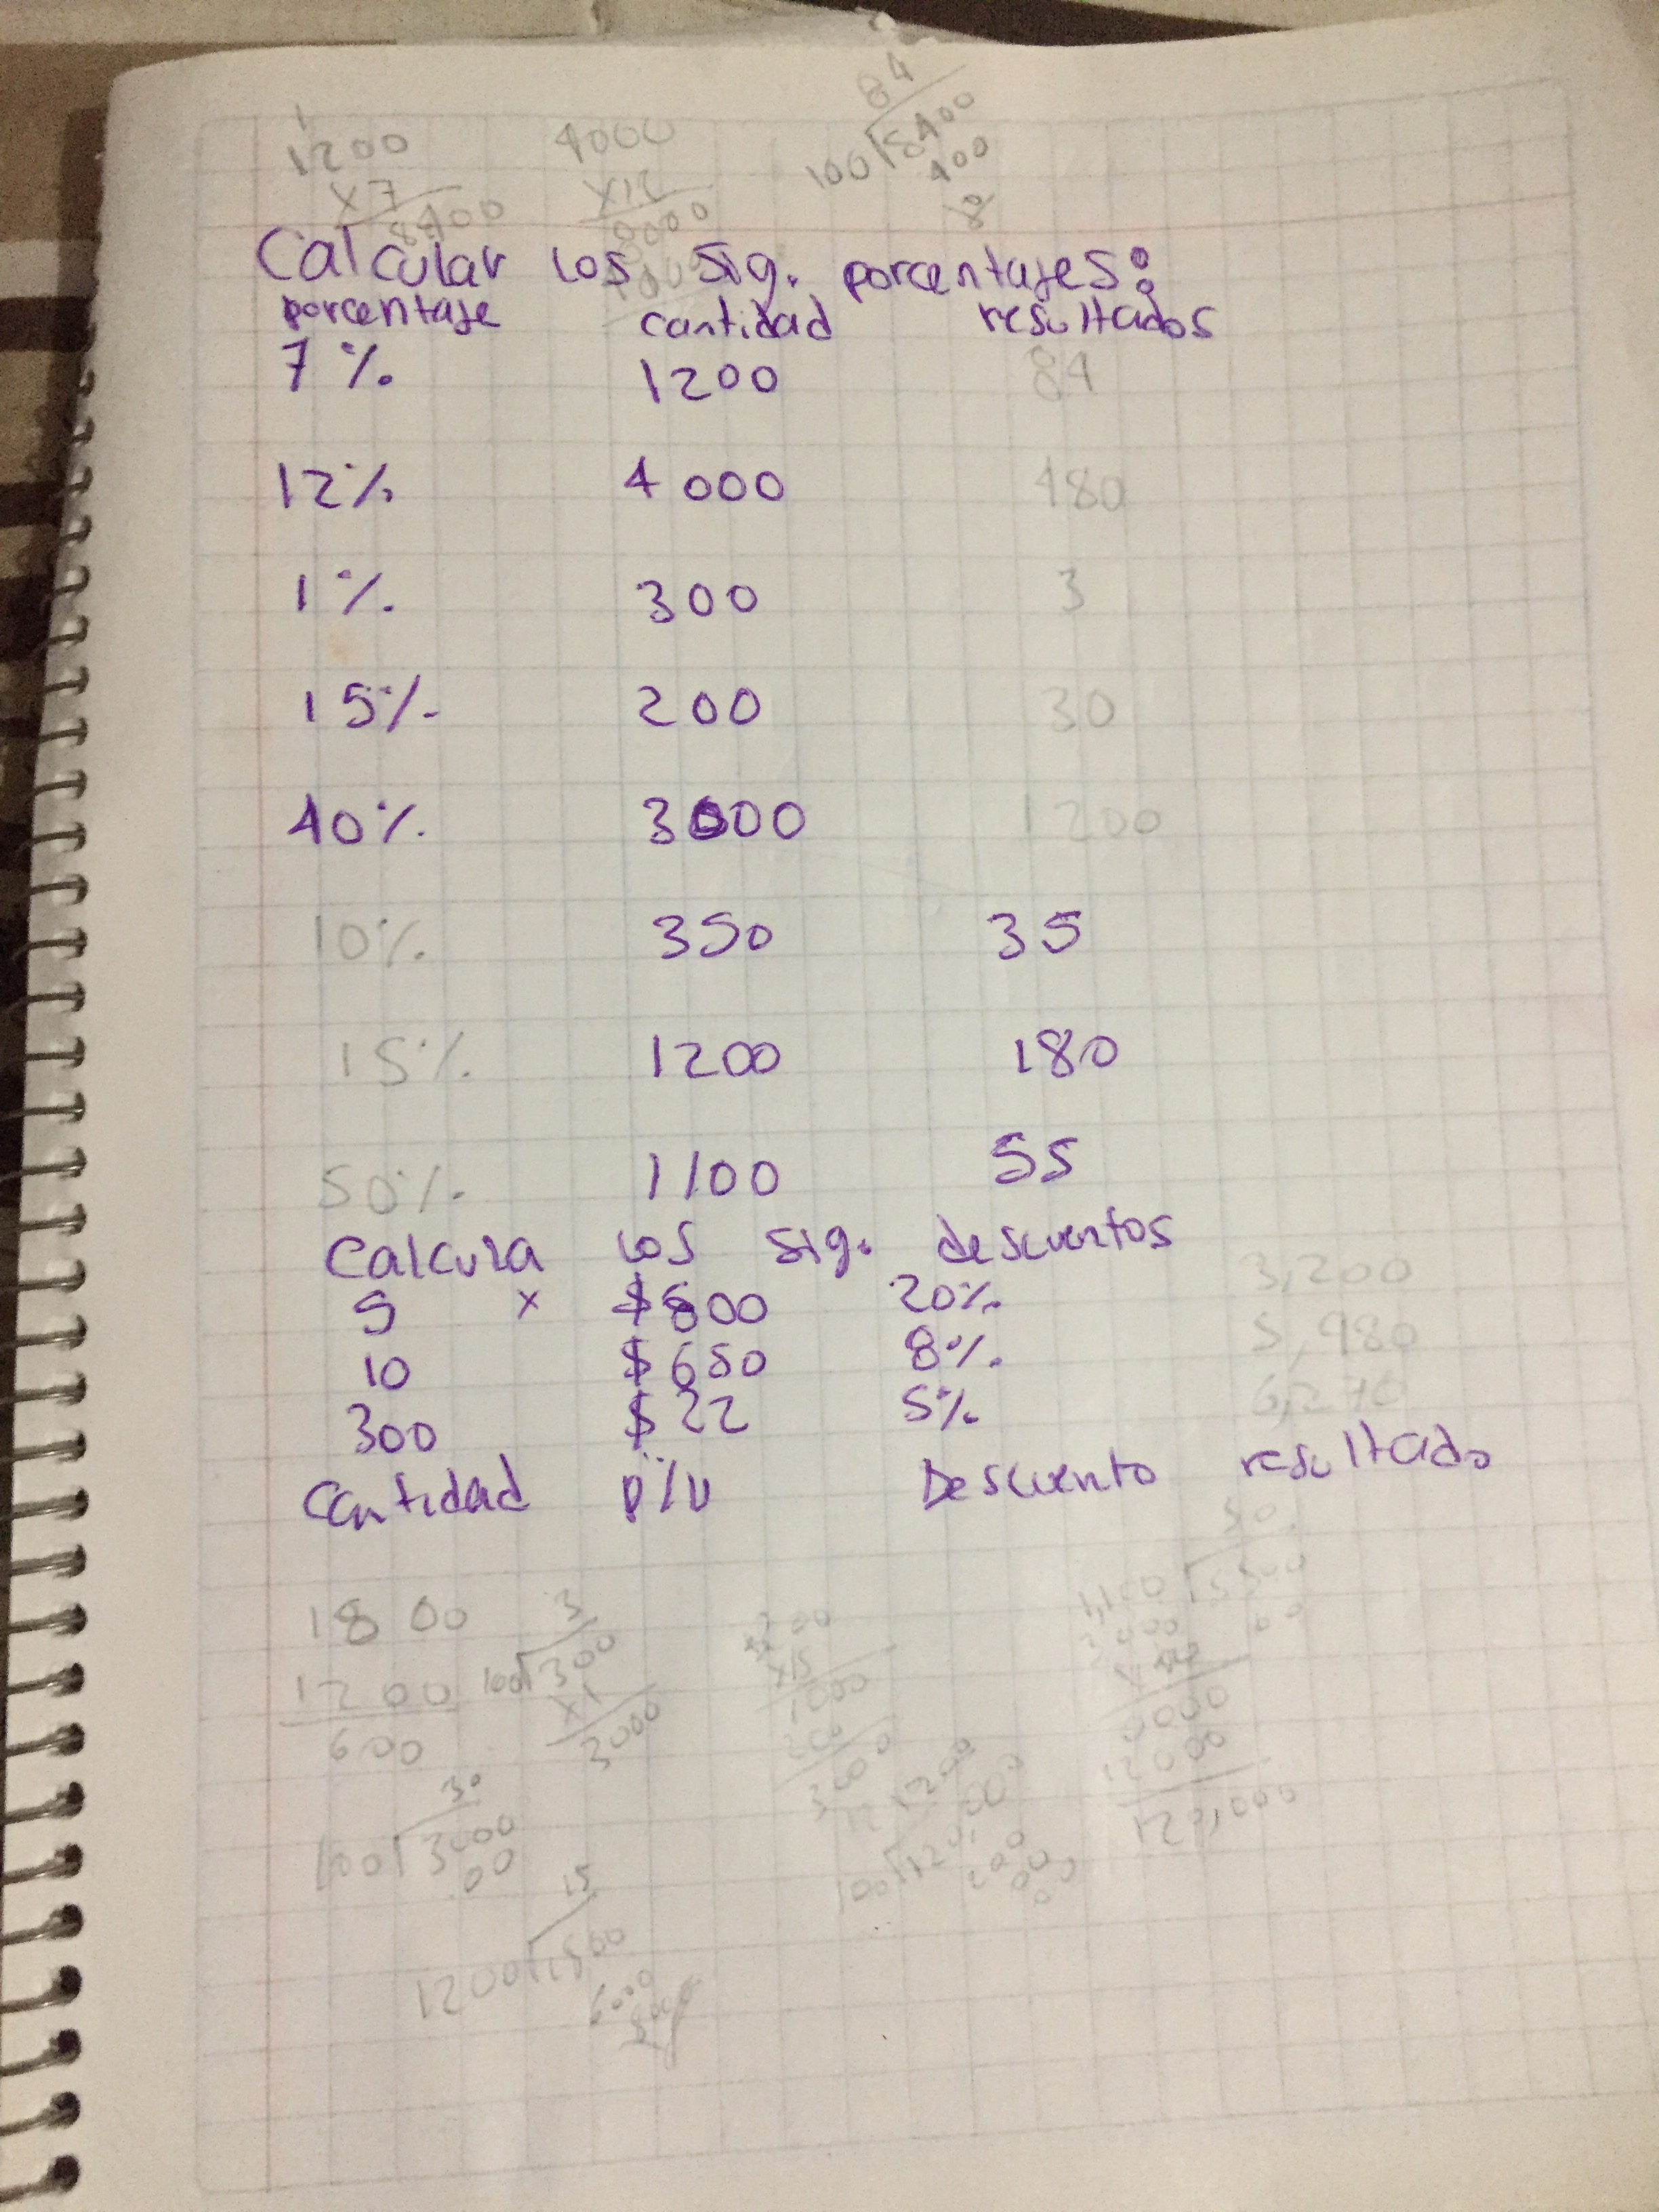 1
1200
x7
8400
4000
x12
8000
84
100 8400
400
0
Calcular los sig. porcentajes:
porcentaje cantidad resultados
7% 1200 84
12% 4000 480
1% 300 3
15% 200 30
40% 3000 1200
10% 350 35
15% 1200 180
50% 1100 55
Calcula los sig. descuentos
5 x $800 20% 3,200
10 $650 8% 5,980
300 $22 5% 6,270
Cantidad P/U Descuento resultado
1800
1200
600
3
100 300
x1
3000
200
x15
1000
200
3000
50.
1,100 5500
00
3000
x40
0000
12000
120,000
30
100 3000
00
1200
100 120,000
200
00
00
15
1200 1800
6000